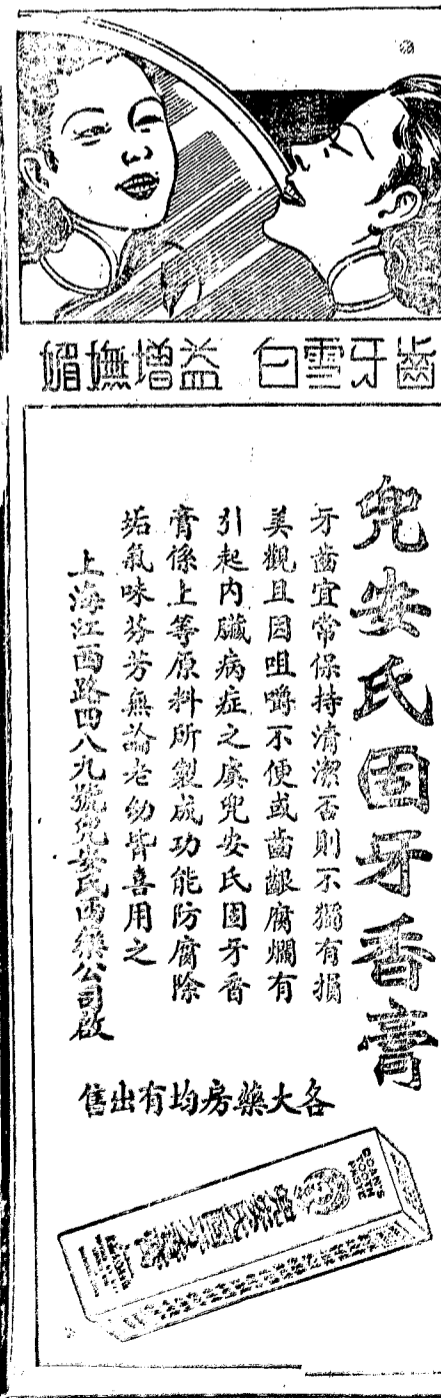 齒牙雪白 益增撫媚
兜安氏固牙香膏
牙齒宜常保持清潔否則不獨有損
美觀且因咀嚼不便或齒齦腐爛有
引起內臟病症之虞兜安氏固牙香
膏係上等原料所製成功能防腐除
垢氣味芬芳無論老幼皆喜用之
上海江西路四八九號兜安氏西藥公司啟
各大藥房均有出售
DOAN'S
TOOTH
PASTE
兜安氏固牙香膏